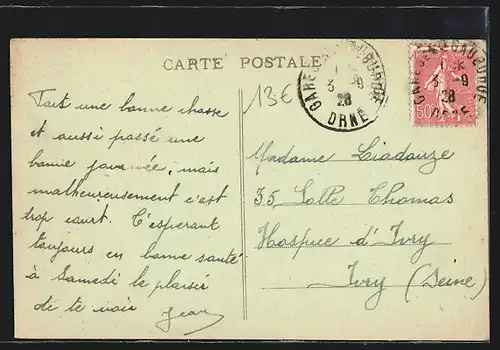 CARTE POSTALE
13€
Fait une bonne chasse
et aussi passé une
bonne journée, mais
malheureusement c'est
trop court. T'esperant
toujours en bonne santé
à Samedi le plaisir
de te voir
Jean
GARE DE BOURG
3 - 9
28
ORNE
50
Madame Liadouze
35 Salle Thomas
Hospice d'Ivry
Ivry (Seine)